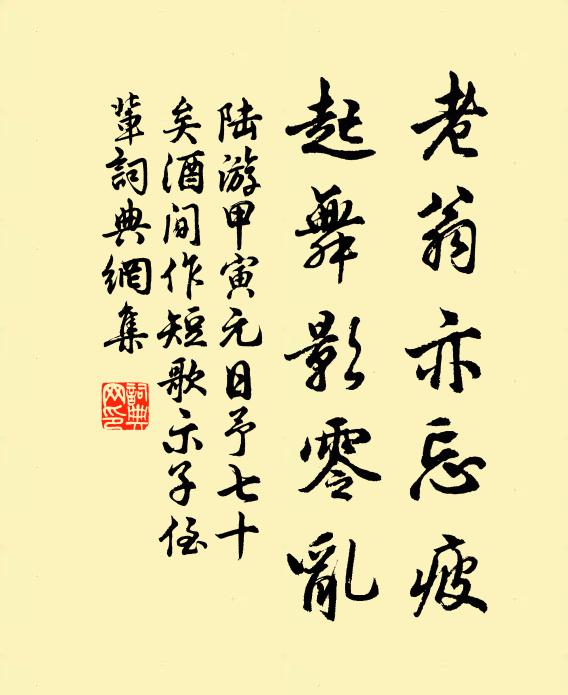 老翁亦忘疲
起舞影零亂
陆游甲寅元日予七十
矣酒间作短歌示子侄
輩詞典網集
詞典网印